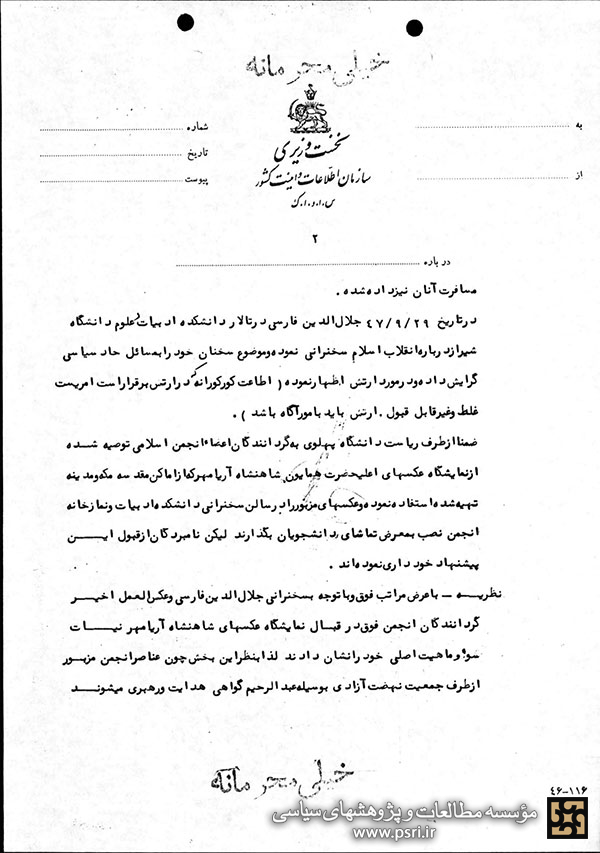 خیلی محرمانه
به
شماره
نخست وزیری
از
تاریخ
سازمان اطلاعات و امنیت کشور
پیوست
س.ا.و.ا.ک
۲
درباره
مسافرت آنان نیز داده شده .
در تاریخ ۴۷/۹/۲۹ جلال الدین فارسی در تالار دانشکده ادبیات و علوم دانشگاه
شیراز درباره انقلاب اسلام سخنرانی نموده و موضوع سخنان خود را به مسائل حاد سیاسی
گرایش داده و در مورد ارتش اظهار نموده ( اطاعت کورکورانه که در ارتش برقرار است امریست
غلط و غیر قابل قبول . ارتش باید بامور آگاه باشد ) .
ضمنا از طرف ریاست دانشگاه پهلوی به گردانندگان اعضاء انجمن اسلامی توصیه شده
از نمایشگاه عکسهای اعلیحضرت همایون شاهنشاه آریامهر که از اماکن مقدسه مکه و مدینه
تهیه شده استفاده نموده و عکسهای مزبور را در سالن سخنرانی دانشکده ادبیات و نمازخانه
انجمن نصب بمعرض تماشای دانشجویان بگذارند لیکن نامبردگان از قبول ایــن
پیشنهاد خودداری نموده اند .
نظریــه ـ با عرض مراتب فوق و با توجه بسخنرانی جلال الدین فارسی و عکس العمل اخیر
گردانندگان انجمن فوق در قبال نمایشگاه عکسهای شاهنشاه آریامهر نیــات
سوء و ماهیت اصلی خود را نشان دادند لذا بنظر این بخش چون عناصر انجمن مزبــور
از طرف جمعیت نهضت آزادی بوسیله عبدالرحیم گواهی هدایت و رهبری میشونــد
خیلی محرمانه
۴۶-۱۱۶
مؤسسه مطالعات و پژوهشهای سیاسی
www.psri.ir